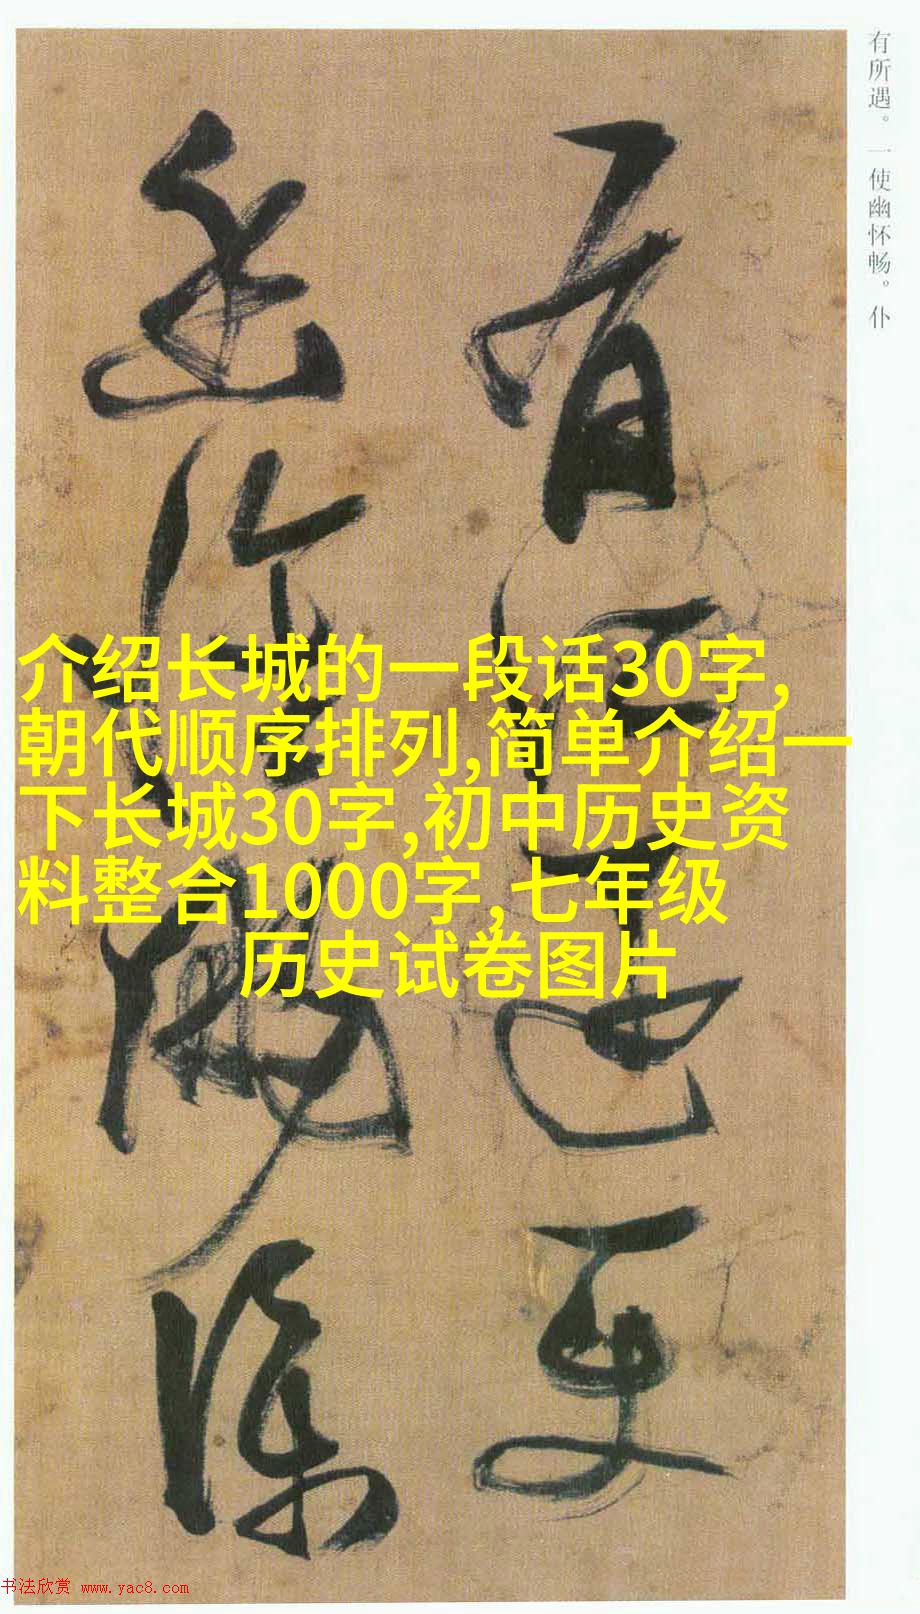 有所遇。一使幽怀畅。仆
有所遇一使
幽怀畅仆
介绍长城的一段话30字,
朝代顺序排列,简单介绍一
下长城30字,初中历史资
料整合1000字,七年级
历史试卷图片
书法欣赏 www.yac8.com